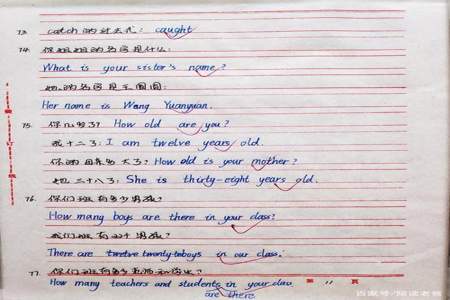 73. catch的过去式: caught
74. 你姐姐的名字是什么:
What is your sister's name?
她的名字是王圆圆:
Her name is Wang Yuanyuan.
75. 你几岁了? How old are you?
我十二了: I am twelve years old.
你的母亲多大了? How old is your mother?
她三十八了: She is thirty-eight years old.
76. 你们班有多少男孩?
How many boys are there in your class?
我们班有 男孩.
There are boys in our class.
77. 你们班有多少老师和学生?
How many teachers and students in your class
are there.